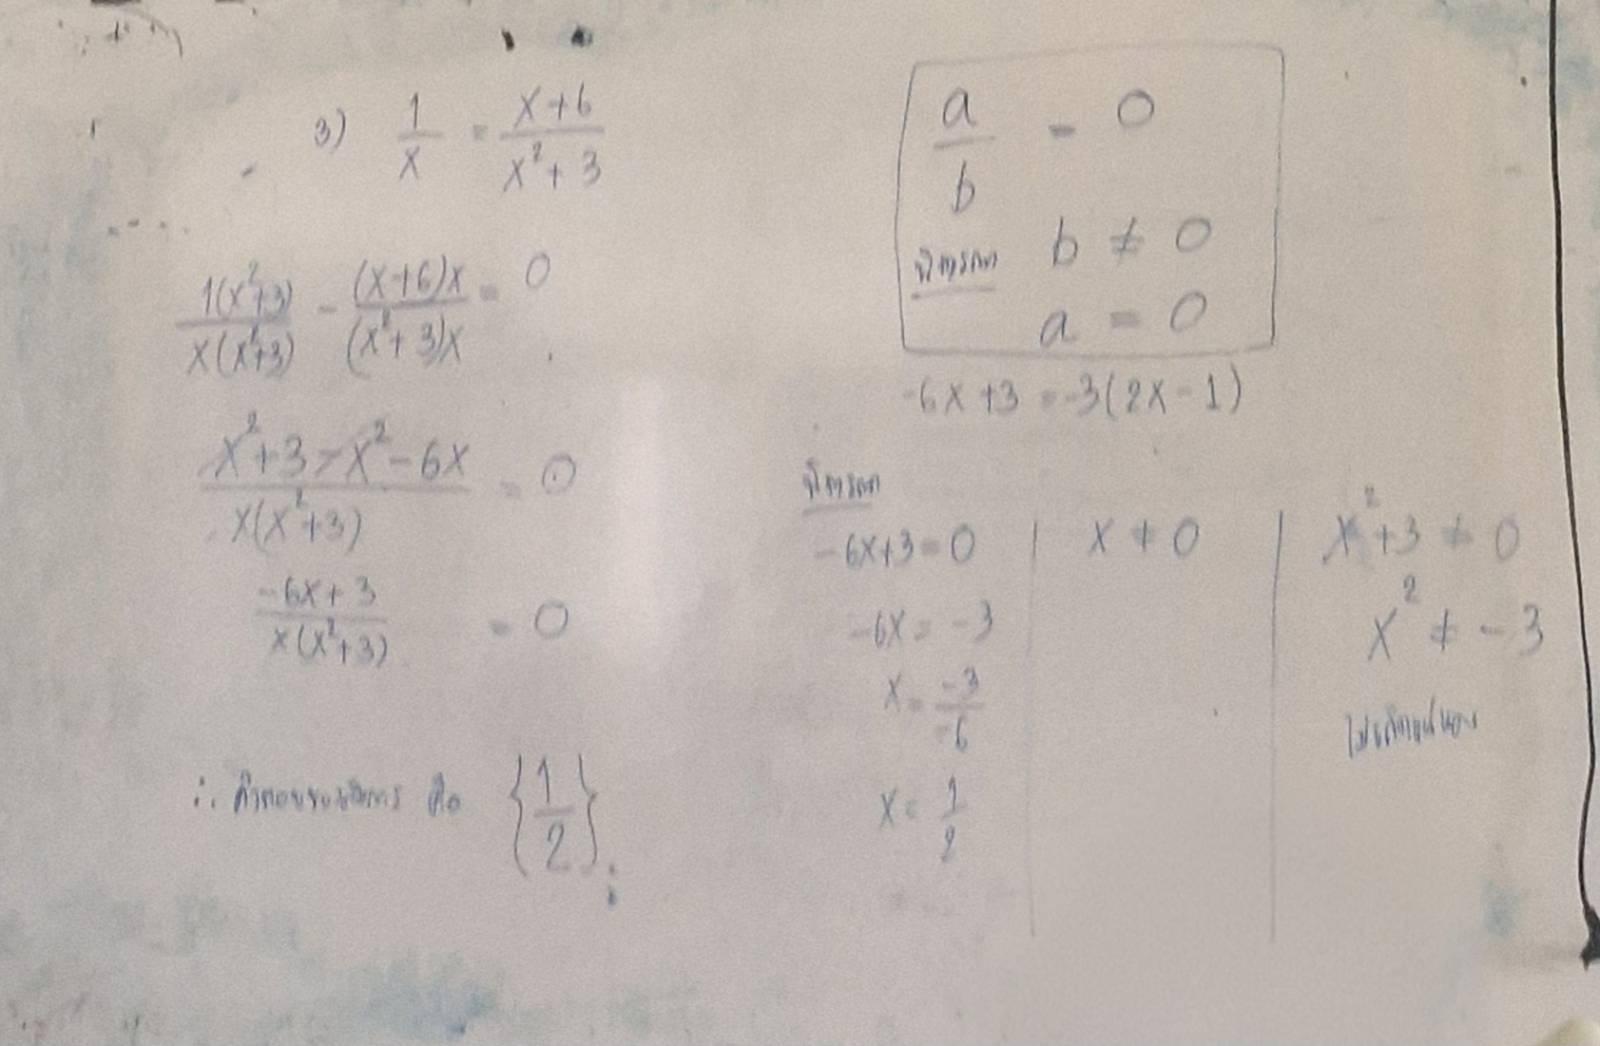 3) 1/x = x+6/x²+3
1(x²+3)/x(x²+3) - (x+6)x/(x²+3)x = 0
x²+3-x²-6x/x(x²+3) = 0
-6x+3/x(x²+3) = 0
∴ คำตอบของสมการ คือ {1/2}
a/b = 0
พิจารณา b ≠ 0
a = 0
-6x+3 = -3(2x-1)
พิจารณา
-6x+3=0
-6x = -3
x = -3/-6
x = 1/2
x ≠ 0
x²+3 ≠ 0
x² ≠ -3